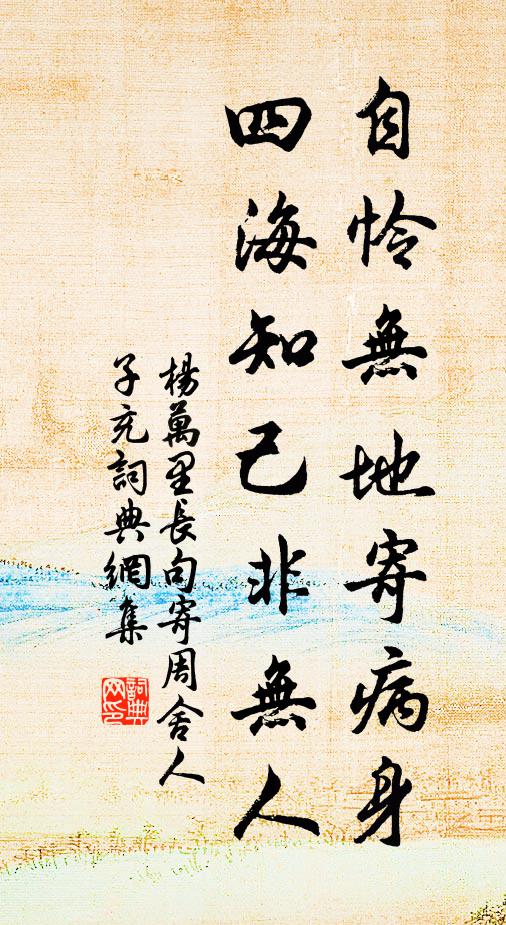 自怜無地寄病身
四海知己非無人
楊萬里長句寄周舍人
子充詞典網集
詞典網印